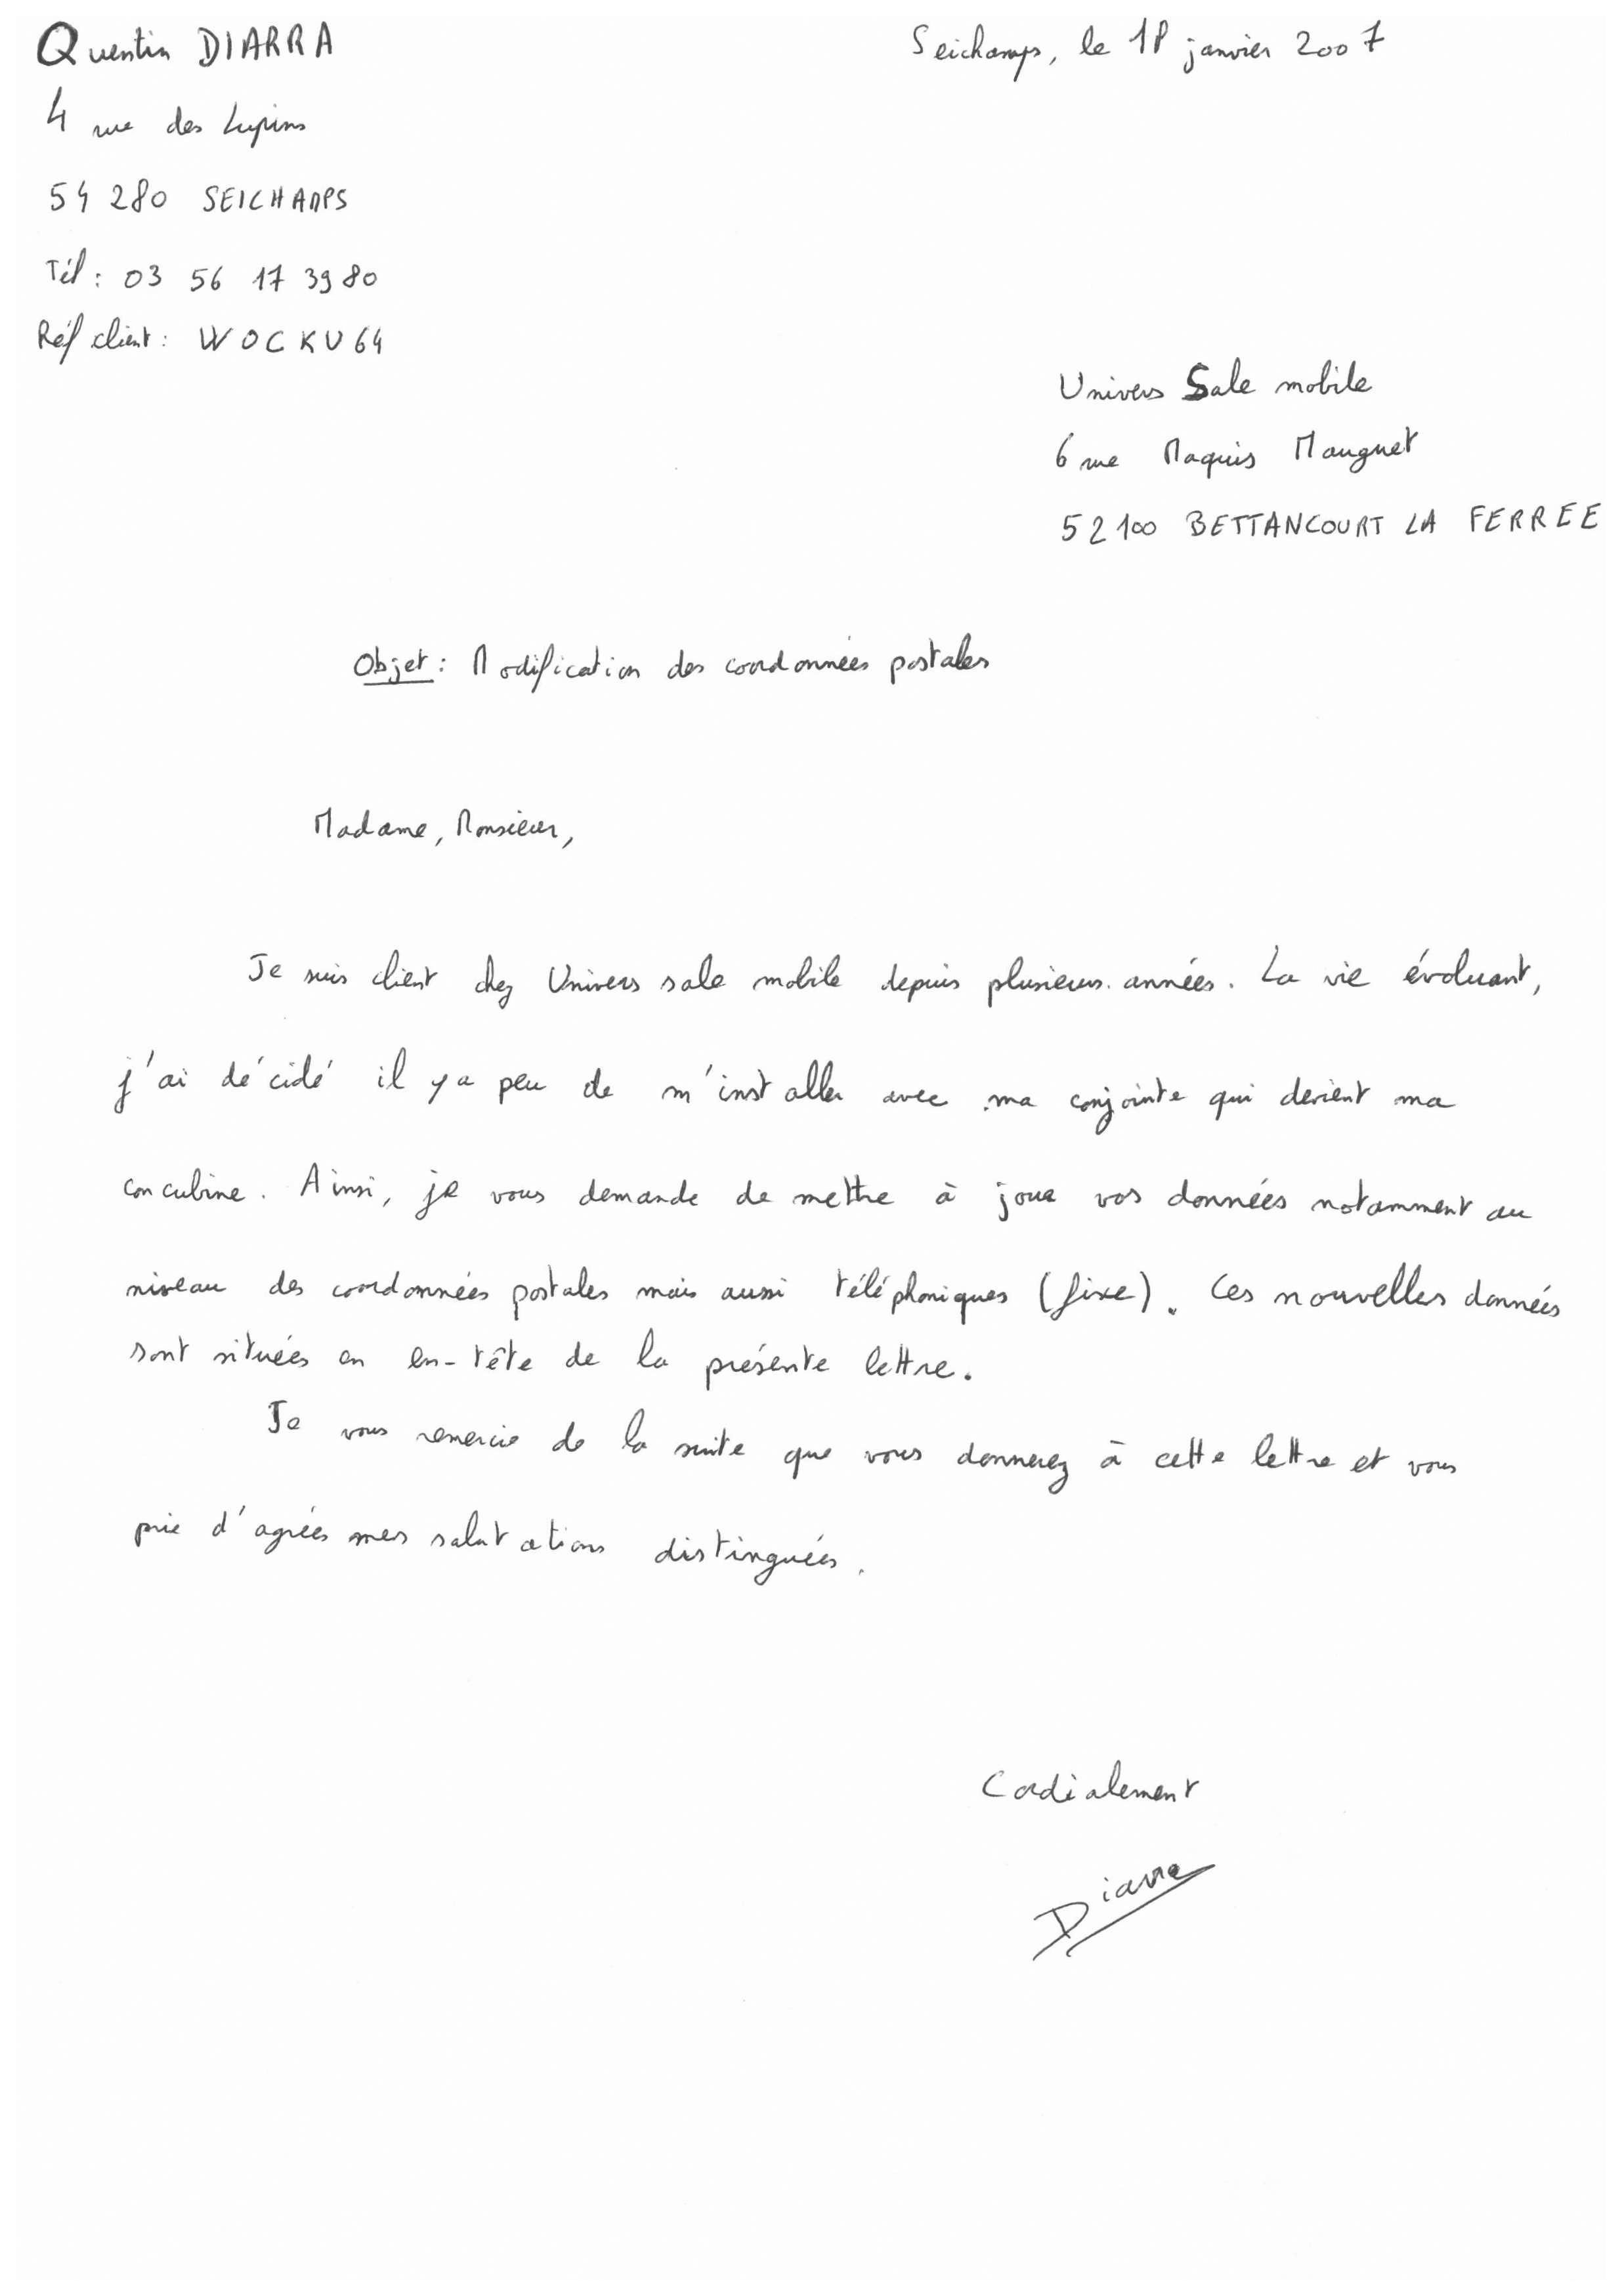 Quentin DIARRA
Seichamps, le 18 janvier 2007
4 rue des Lupins
54 280 SEICHAMPS
Tél : 03 56 17 39 80
Réf client : WOCKU64
Univers Sale mobile
6 rue Maquis Mauguet
52100 BETTANCOURT LA FERREE
Objet : Modification des coordonnées postales
Madame, Monsieur,
Je suis client chez Univers sale mobile depuis plusieurs années. La vie évoluant,
j'ai décidé il y a peu de m'installer avec ma conjointe qui devient ma
concubine. Ainsi, je vous demande de mettre à jour vos données notamment au
niveau des coordonnées postales mais aussi téléphoniques (fixe). Ces nouvelles données
sont situées en en-tête de la présente lettre.
Je vous remercie de la suite que vous donnerez à cette lettre et vous
prie d'agréés mes salutations distinguées.
Cordialement
Diarra